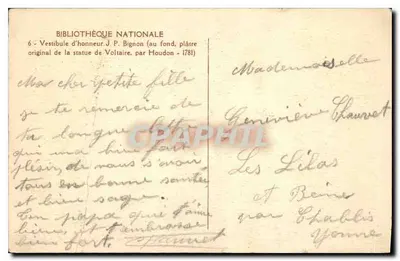 BIBLIOTHÈQUE NATIONALE
6 - Vestibule d'honneur J. P. Bignon (au fond, plâtre
original de la statue de Voltaire, par Houdon - 1781)
Ma cher petite fille
je te remercie de
ta longue lettre
qui m'a bien fait
plésir, de vous s'avoir
tous en bonne santée
et bien sage.
Ton papa que t'aime
bien et t'embrasse
bien fort. Chauvet
Mademoiselle
Geneviève Chauvet
Les Lilas
et Beine
par Chablis
Yonne
CPARHAMA